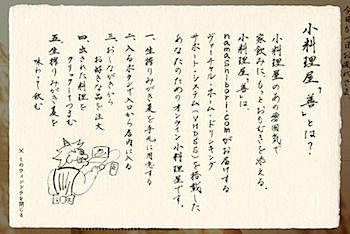 小料理屋「善」とは？
小料理屋のあの雰囲気で
家飲みに、もっとおもむきを添える。
小料理屋「善」は
namashibori.comがお届けする
ヴァーチャル・ホーム・ドリンキング
サポート・システム(VHDSS)を搭載した
あなたのためのオンライン小料理屋です。
一、生搾りみがき麦を手元に用意する
二、入るボタンで入口から店内に入る
三、おしながきから
お好きな品を注文
四、出された料理を
クリックしてつまむ
五、生搾りみがき麦を
味わって飲む
×このウィンドウを閉じる